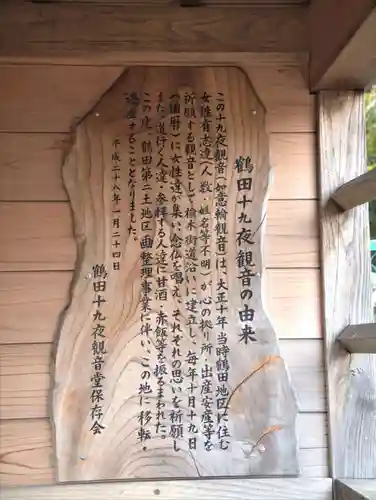 鶴田十九夜観音の由来
この十九夜観音(如意輪観音)は、大正十年当時鶴田地区に住む
女性有志達(人数・姓名等不明)が心の拠り所、出産安産等を
祈願する観音として栃木街道沿いに建立し、毎年十月十九日
(旧暦)に女性達が集い、念仏を唱え、それぞれの思いを祈願し
また、道行く人達、参拝する人達に甘酒、赤飯等を振るまわれた。
この度、鶴田第二土地区画整理事業に伴い、この地に移転・
することとなりました。
平成二十八年一月二十四日
鶴田十九夜観音堂保存会